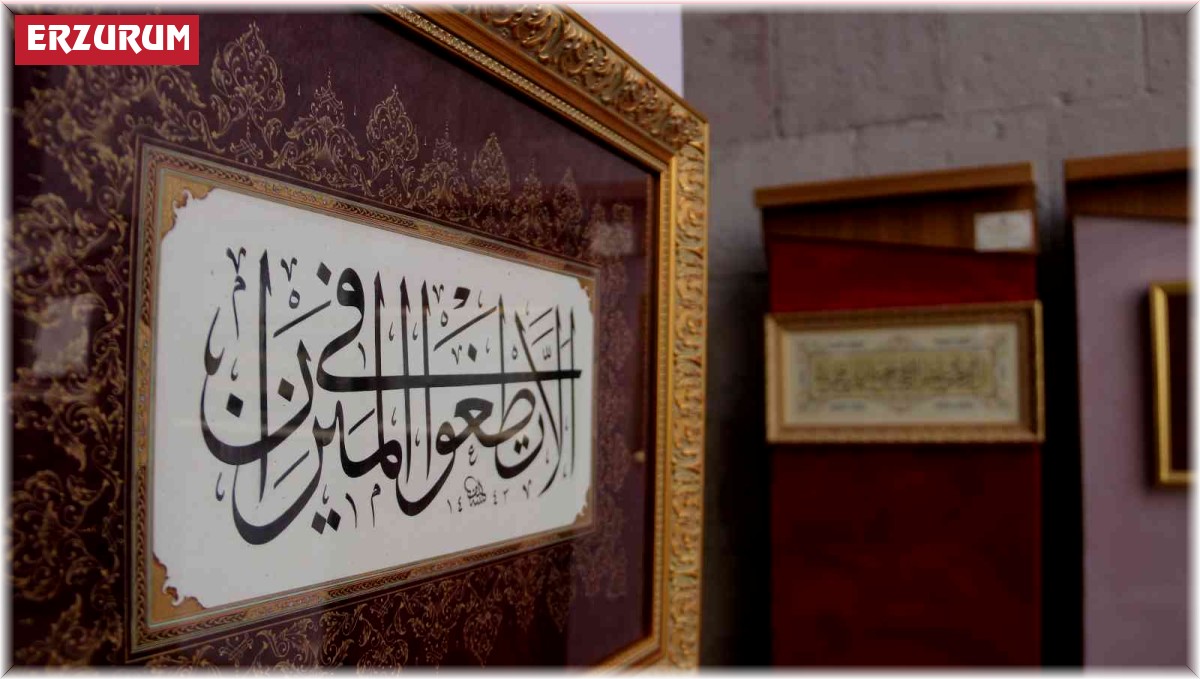 ERZURUM
ألا تطغوا في الميزان
١٤٤٢